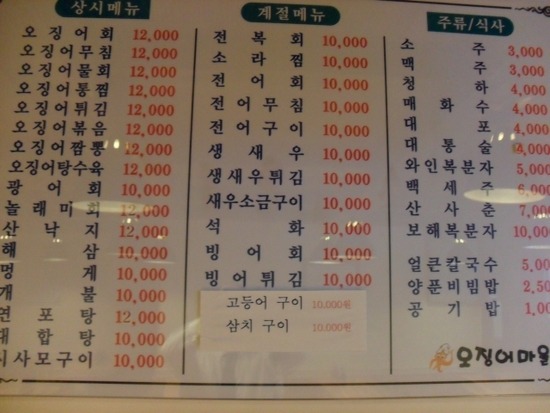 상시메뉴
오징어회 12,000
오징어무침 12,000
오징어물회 12,000
오징어통찜 12,000
오징어튀김 12,000
오징어볶음 12,000
오징어짬뽕 12,000
오징어탕수육 12,000
광어회 10,000
놀래미회 12,000
산낙지 12,000
해삼 10,000
멍게 10,000
개불 10,000
연포탕 12,000
대합탕 10,000
시사모구이 10,000
계절메뉴
전복회 10,000
소라찜 10,000
전어회 10,000
전어무침 10,000
전어구이 10,000
생새우 10,000
생새우튀김 10,000
새우소금구이 10,000
석화 10,000
빙어회 10,000
빙어튀김 10,000
고등어 구이 10,000원
삼치 구이 10,000원
주류/식사
소주 3,000
맥주 3,000
청하 4,000
매화수 4,000
대포 4,000
대통술
와인복분자 5,000
백세주 6,000
산사춘 7,000
보해복분자 10,000
얼큰칼국수 5,00
양푼비빔밥 2,50
공기밥 1,00
오징어마을